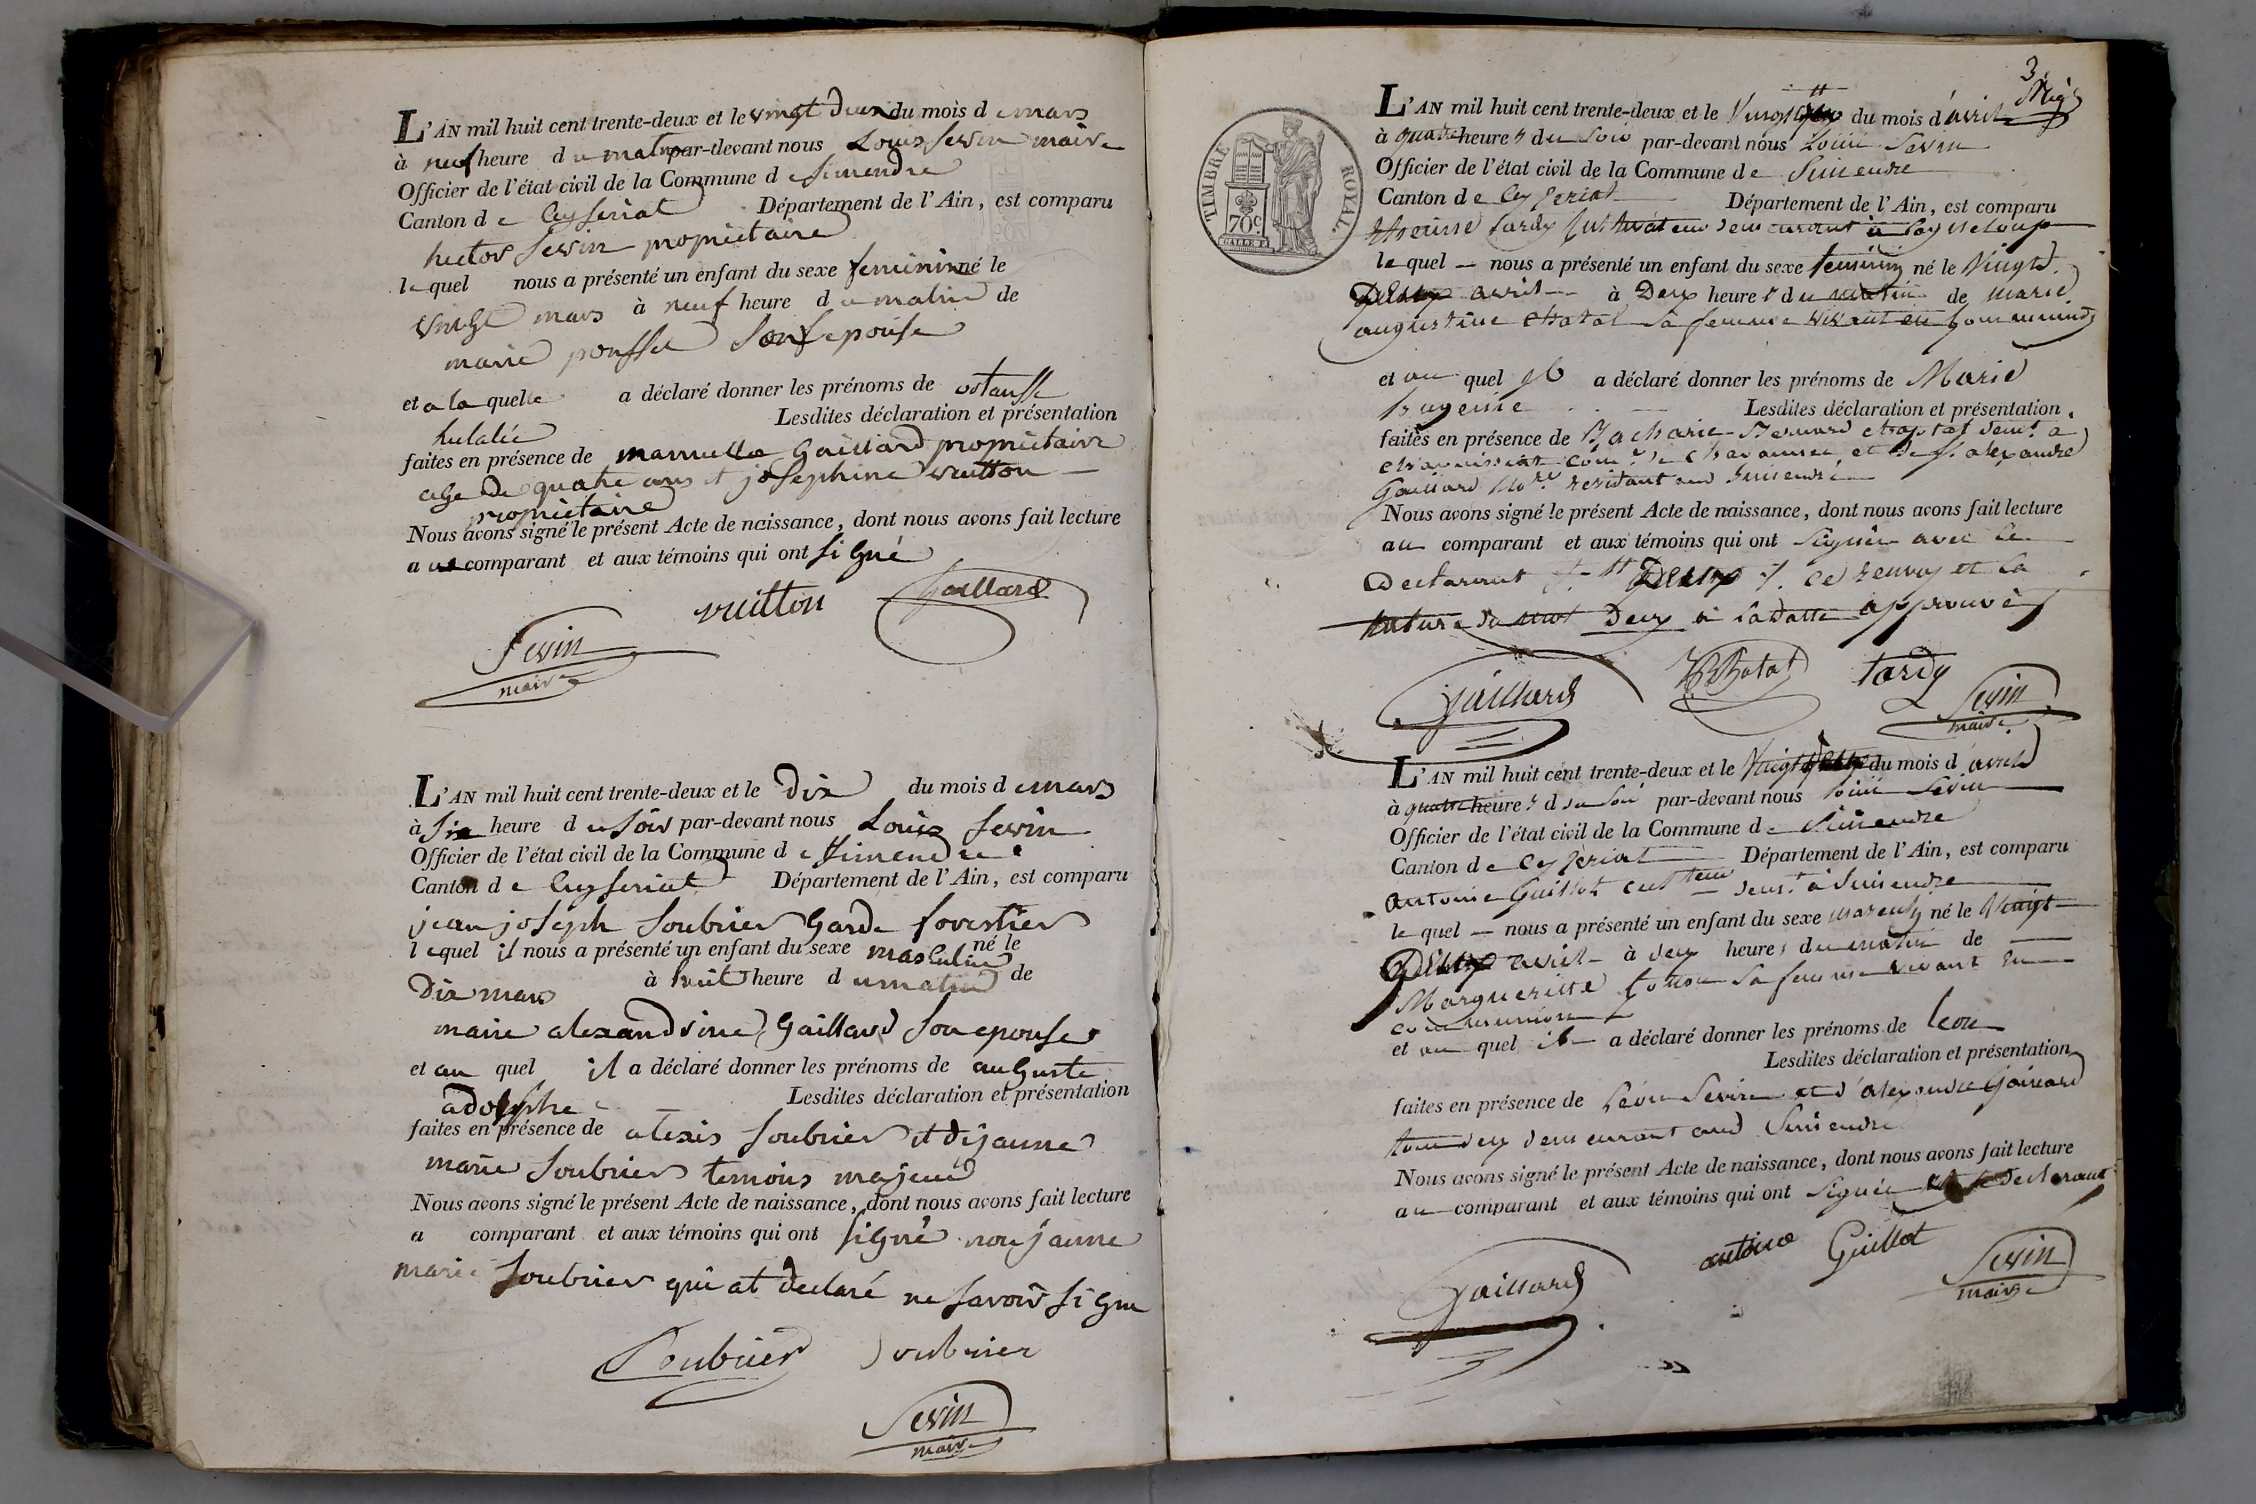 L'AN mil huit cent trente-deux et le vingt deux du mois d e mars
à neuf heure d u matin par-devant nous Louis Sevin maire
Officier de l'état civil de la Commune d e Simendre
Canton d e Ceyseriat Département de l'Ain, est comparu
hector Sevin propriétaire
le quel nous a présenté un enfant du sexe feminin né le
vingt mars à neuf heure d u matin de
marie pousset Son Epouse
et a la quelle a déclaré donner les prénoms de
Lesdites déclaration et présentation
faites en présence de Gaillard propriétaire
age de quatre ans et josephine vuitton
propriétaire
Nous avons signé le présent Acte de naissance, dont nous avons fait lecture
a comparant et aux témoins qui ont signé
vuitton Gaillard
Sevin
maire
L'AN mil huit cent trente-deux et le Dix du mois d e mars
à Six heure d u Soir par-devant nous Louis Sevin
Officier de l'état civil de la Commune d e Simendre
Canton d e Ceyseriat Département de l'Ain, est comparu
jean joseph Soubrier Garde forestier
l equel il nous a présenté un enfant du sexe masculin né le
Dix mars à huit heure d u matin de
marie alexandrine Gaillard Son epouse
et au quel il a déclaré donner les prénoms de auguste
adolphe Lesdites déclaration et présentation
faites en présence de alexis Soubrier et de jaune
marie Soubrier temoins majeur
Nous avons signé le présent Acte de naissance, dont nous avons fait lecture
a comparant et aux témoins qui ont signé non jaune
marie Soubrier qui at declaré ne savoir signe
Soubrier Soubrier
Sevin
maire
3
L'AN mil huit cent trente-deux et le Vingt du mois d'avril
à quatre heure s du Soir par-devant nous Louis Sevin
Officier de l'état civil de la Commune d e Simendre
Canton d e Ceyzeriat Département de l'Ain, est comparu
TIMBRE ROYAL
70c.
tardy Cultivateur demeurant à
le quel nous a présenté un enfant du sexe feminin né le Vingt
Deux avril à Deux heure s du matin de marie
augustine Chatal sa femme vivant en
et au quel il a déclaré donner les prénoms de Marie
Lesdites déclaration et présentation
faites en présence de Zacharie Bernard demt a
et alexandre
Gaillard résidant aud Simendre
Nous avons signé le présent Acte de naissance, dont nous avons fait lecture
au comparant et aux témoins qui ont signé avec le
Declarant Deux ce renvoy et la
du mot Deux à la datte approuvé
Gaillard tardy Sevin
maire
L'AN mil huit cent trente-deux et le Vingt deux du mois d'avril
à quatre heure s du Soir par-devant nous Louis Sevin
Officier de l'état civil de la Commune d e Simendre
Canton d e Ceyzeriat Département de l'Ain, est comparu
antoine Guillot demt à Simendre
le quel nous a présenté un enfant du sexe masculin né le Vingt
Deux avril à deux heure s du matin de
Margueritte sa femme vivant en
communion
et au quel il a déclaré donner les prénoms de Leon
Lesdites déclaration et présentation
faites en présence de Léon Sevin et d'alexandre Gaillard
tous deux demeurant aud Simendre
Nous avons signé le présent Acte de naissance, dont nous avons fait lecture
au comparant et aux témoins qui ont signé le declarant
antoine Guillot
Gaillard Sevin
maire